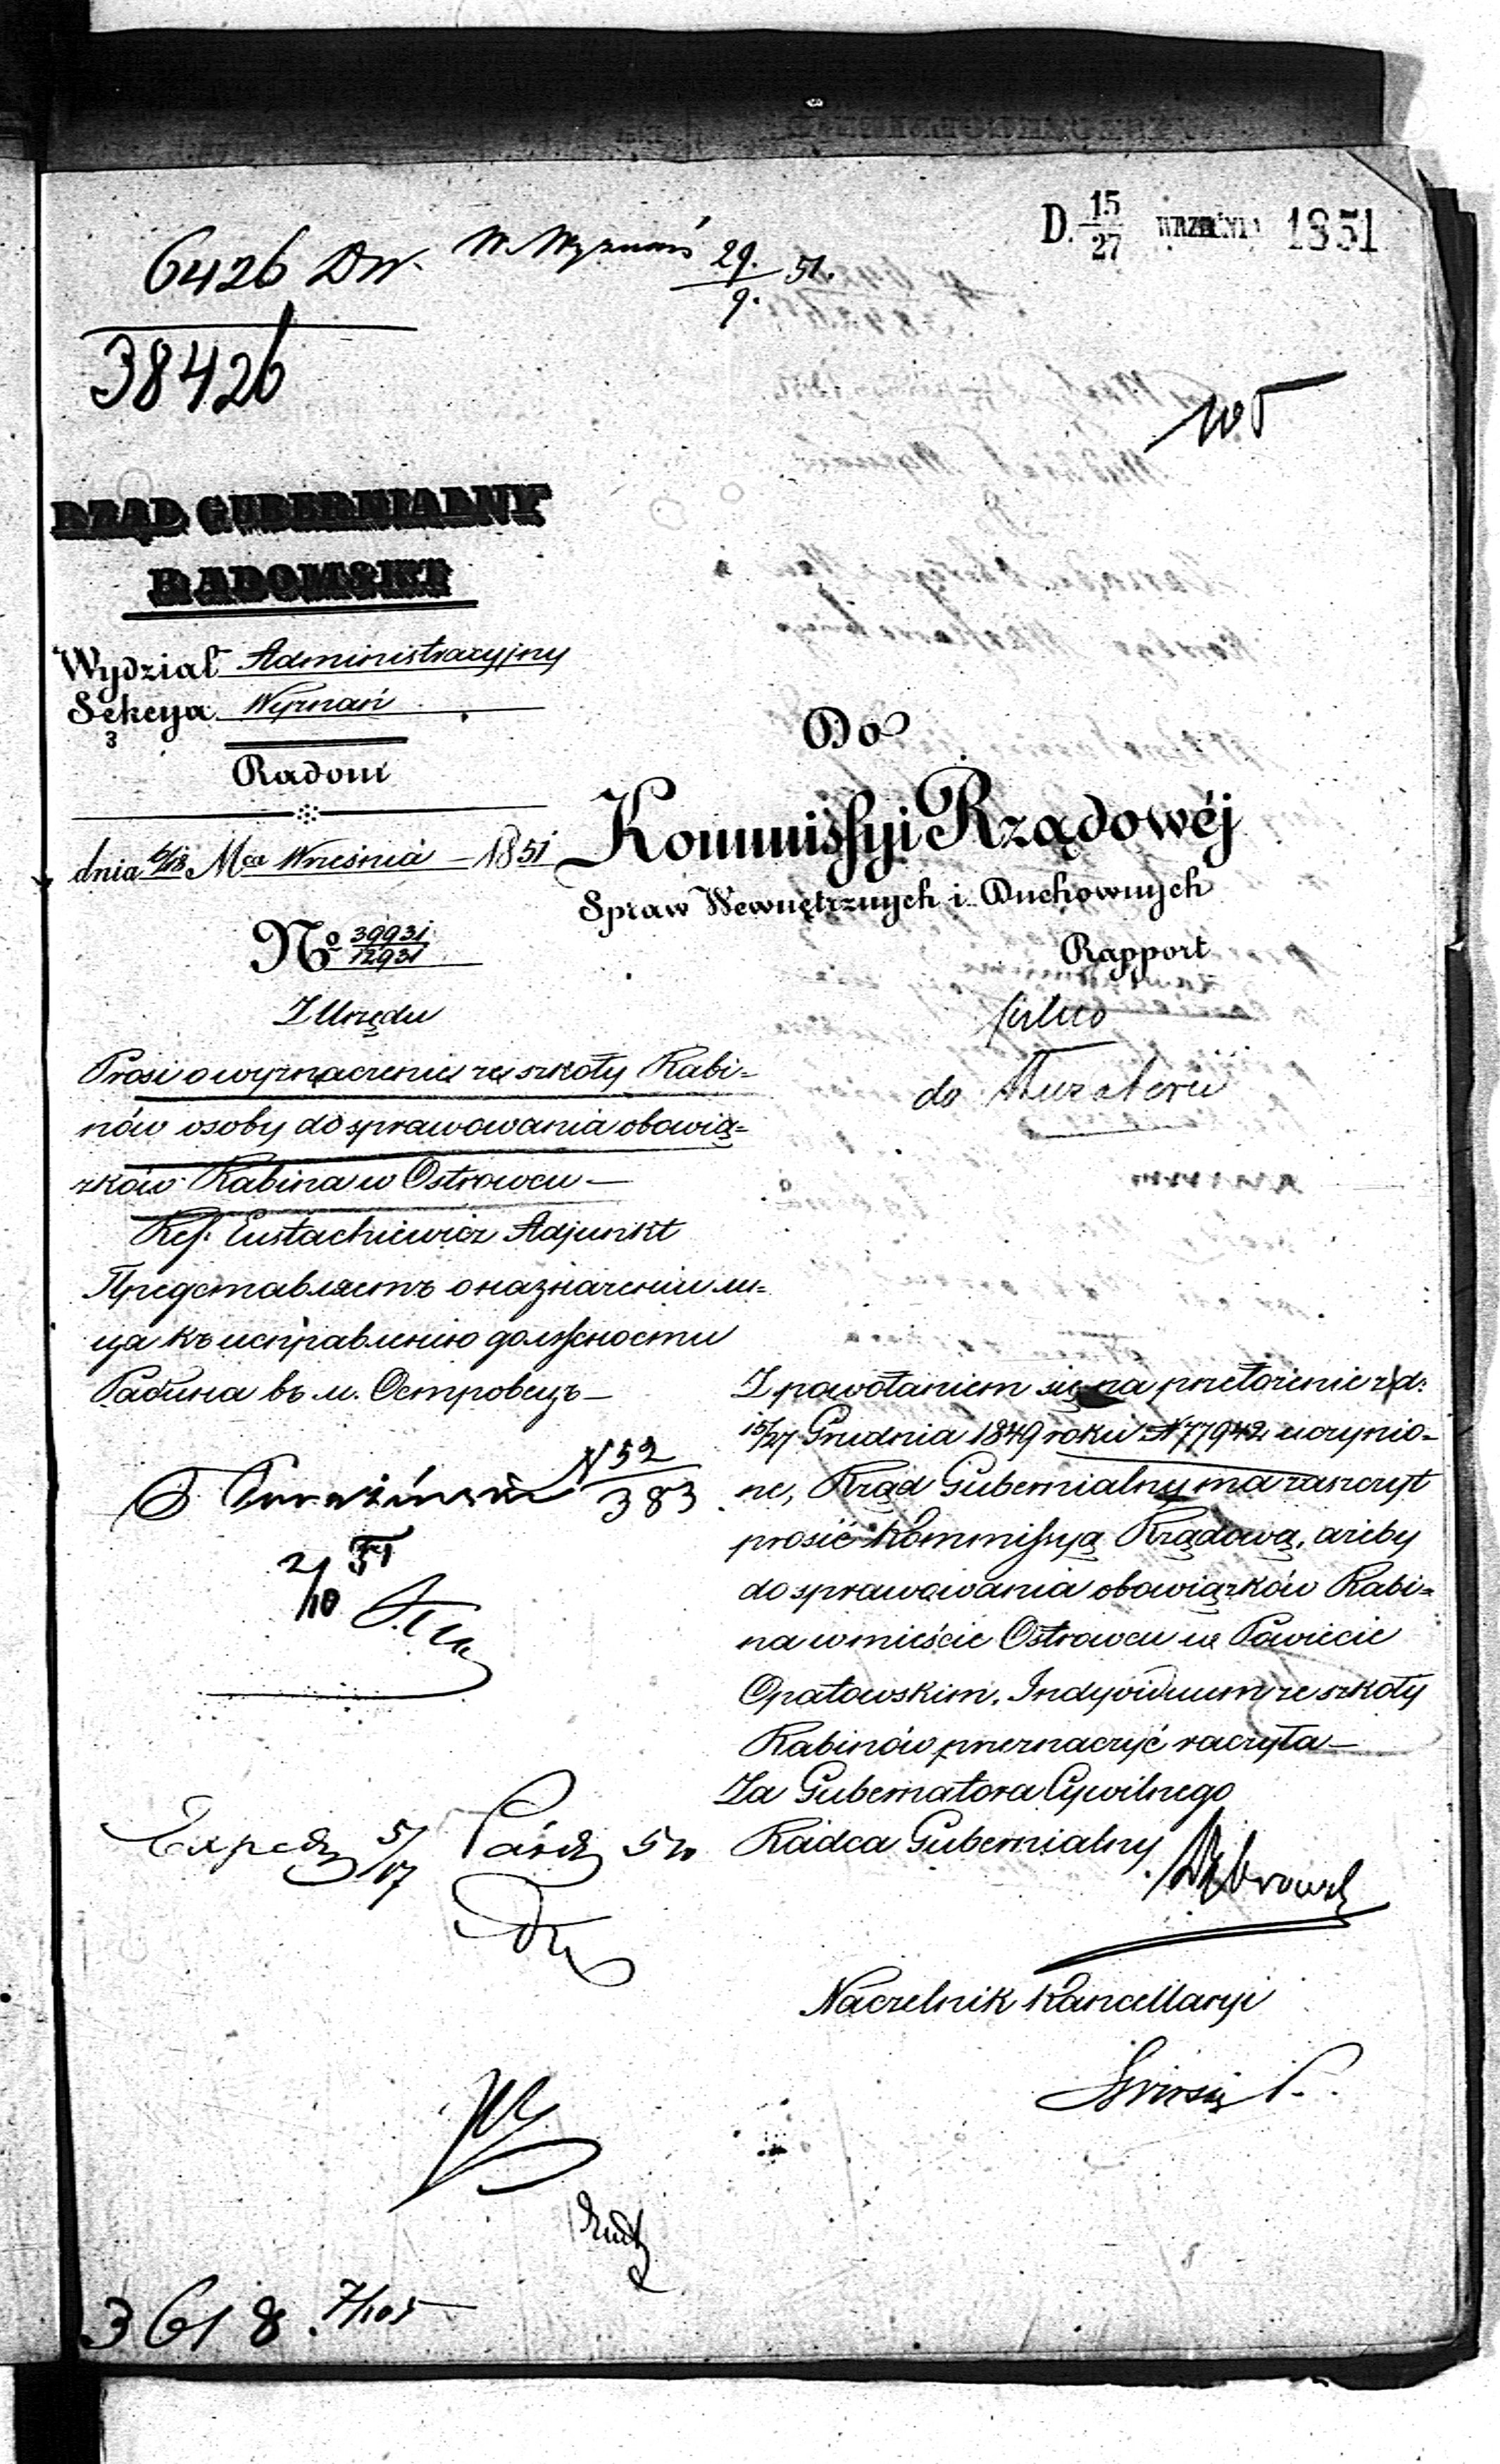 D. 15/27 WRZEŚNIA 1851
6426 DW. W. Wyznań 29./9. 51.
38426
RZĄD GUBERNIALNY
RADOMSKI
Wydział Administracyjny
Sekcya Wyznań
3
Radom
dnia 6/18 Mca Września 1851
No 39931/12931
Z Urzędu
Prosi o wyznaczenie ze szkoły Rabi=
nów osoby do sprawowania obowią=
zków Rabina w Ostrowcu —
Ref. Eustachiewicz Adjunkt
Представляетъ о назначении ли=
ца къ исправлению должности
Рабина въ м. Островецъ —
N 52/383
21/10 51
Exped 5/17
3618. 7/105
Do
Kommissyi Rządowéj
Spraw Wewnętrznych i Duchownych
Rapport
do
Z powołaniem się na przełożenie z d:
15/27 Grudnia 1849 roku N 77942 uczynio=
ne, Rząd Gubernialny ma zaszczyt
prosić Kommissyą Rządową, ażeby
do sprawowania obowiązków Rabi=
na w mieście Ostrowcu w Powiecie
Opatowskim, Indywiduum ze szkoły
Rabinów przeznaczyć raczyła —
Za Gubernatora Cywilnego
Radca Gubernialny
Naczelnik Kancellaryi